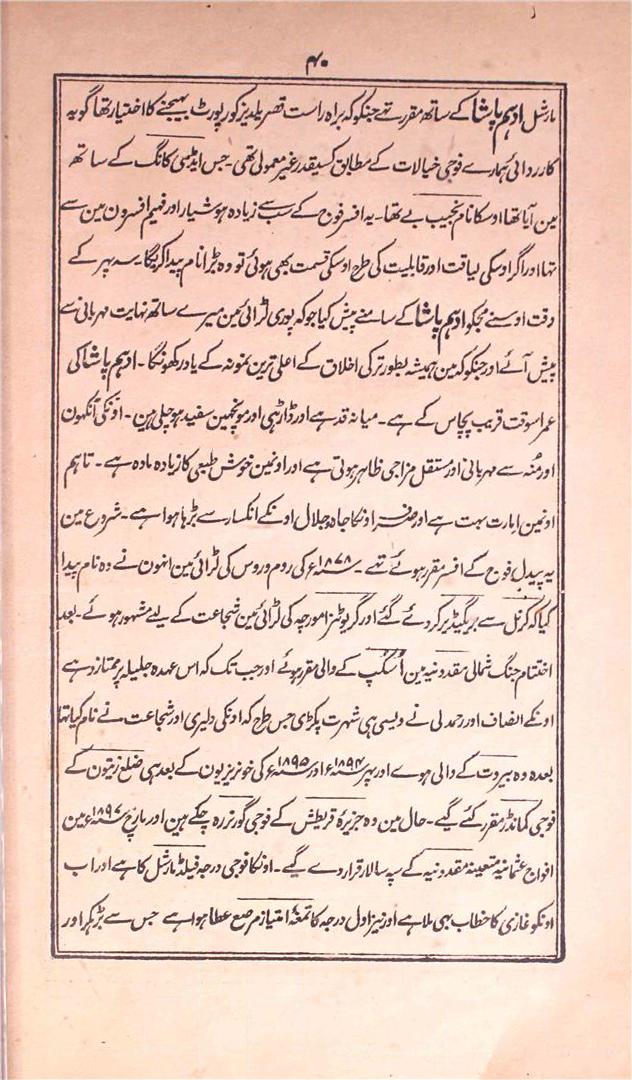 ۴۰
مارشل ادہم پاشا کے ساتھ مقرر تھے جنکو کہ براہ راست قصر یلدیز کو رپورٹ بھیجنے کا اختیار تھا گو یہ
کارروائی ہمارے فوجی خیالات کے مطابق کسیقدر غیر معمولی تھی۔ جس ایڈیسی کانگ کے ساتھ
مین آیا تھا اوسکا نام نجیب بے تھا۔ یہ افسر فوج کے سب سے زیادہ ہوشیار اور فہیم افسرون مین سے
تھا اور اگر اوسکی لیاقت اور قابلیت کی طرح اوسکی قسمت بھی ہوئی تو وہ بڑا نام پیدا کریگا۔ سہ پہر کے
وقت اوسنے مجکو ادہم پاشا کے سامنے پیش کیا جو کہ پوری لڑائی مین میرے ساتھ نہایت مہربانی سے
پیش آئے اور جنکو کہ مین ہمیشہ بطور ترکی اخلاق کے اعلی ترین نمونہ کے یاد رکھونگا۔ ادہم پاشا کی
عمر اسوقت قریب پچاس کے ہے۔ میانہ قد ہے اور ڈاڑہی اور موچھین سفید ہو چلی ہین۔ اونکی آنکھون
اور منُہ سے مہربانی اور مستقل مزاجی ظاہر ہوتی ہے اور اونمین خوش طبعی کا زیادہ مادہ ہے۔ تاہم
اونمین امارت بہت ہے اور صرف اونکا جاہ و جلال اونکے انکسار سے بڑہا ہوا ہے۔ شروع مین
یہ پیدل فوج کے افسر مقرر ہوئے تھے۔ سنہ ۱۸۷۸ء کی روم و روس کی لڑائی مین انہون نے وہ نام پیدا
کیا کہ کرنل سے بریگیڈیر کر دئے گئے اور گریوٹنزا مورچہ کی لڑائی مین شجاعت کے لیے مشہور ہوئے۔ بعد
اختتام جنگ شمالی مقدونیہ مین اُسکپ کے والی مقرر ہوئے اور جب تک کہ اس عہدہ جلیلہ پر ممتاز رہے
اونکے انصاف اور رحمدلی نے ویسی ہی شہرت پکڑی جس طرح کہ اونکی دلیری اور شجاعت نے نام کیا تھا
بعدہ وہ بیروت کے والی ہوے اور پہر سنہ ۱۸۹۴ء اور سنہ ۱۸۹۵ء کی خونریزیون کے بعد ہی ضلع زیتون کے
فوجی کمانڈر مقرر کئے گیے۔ حال مین وہ جزیرۂ قریطش کے فوجی گورنر رہ چکے ہین اور مارچ سنہ ۱۸۹۷ء مین
افواج عثمانیہ متعینۂ مقدونیہ کے سپہ سالار قرار دے گیے۔ اونکا فوجی درجہ فیلڈ مارشل کا ہے اور اب
اونکو غازی کا خطاب بہی ملا ہے اور نیز اول درجہ کا تمغۂ امتیاز مرصع عطا ہوا ہے جس سے بڑہکر اور